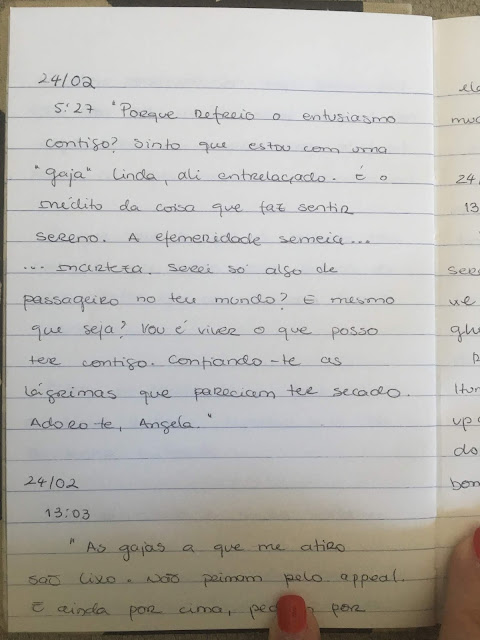 24/02
5:27 "Porque refreio o entusiasmo
contigo? Sinto que estou com uma
"gaja" linda, ali entrelaçado. É o
inédito da coisa que faz sentir
sereno. A efemeridade semeia...
... incerteza. Serei só algo de
passageiro no teu mundo? E mesmo
que seja? Vou é viver o que posso
ter contigo. Confiando-te as
lágrimas que pareciam ter secado.
Adoro-te, Angela."
24/02
13:03
"As gajas a que me atiro
são lixo. Não primam pelo appeal.
E ainda por cima, por
24
13